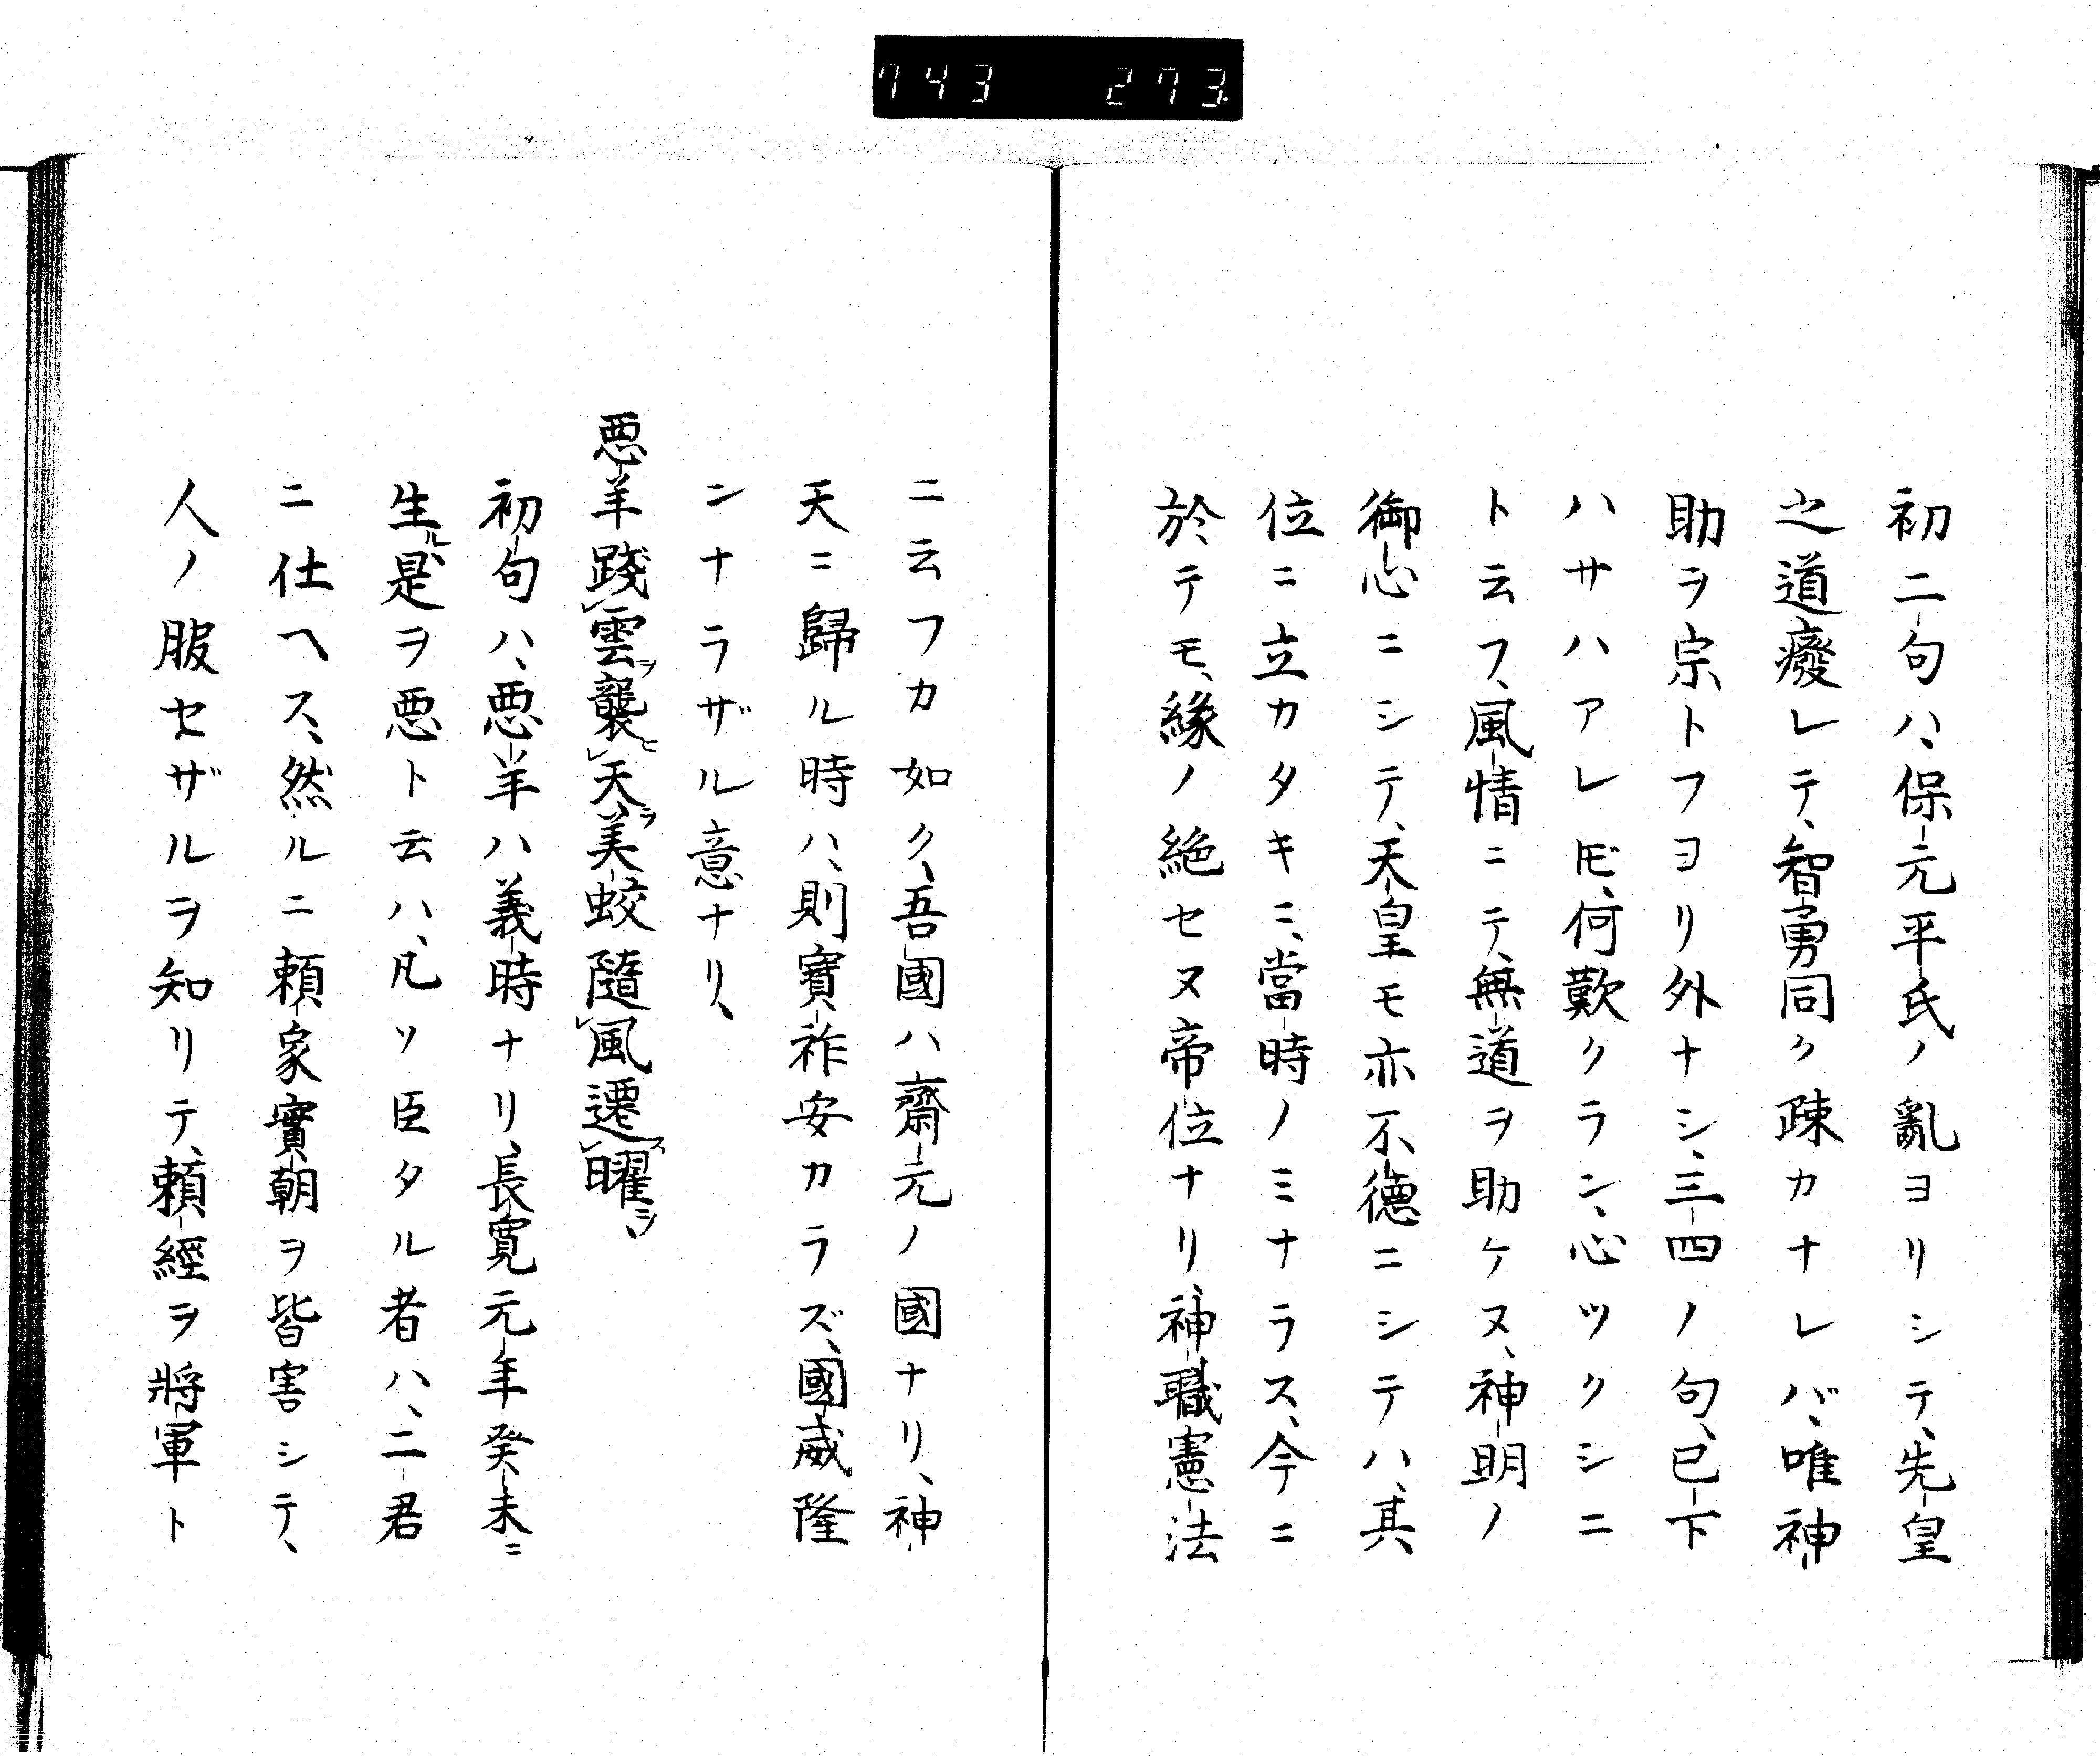 743 273
初二句ハ、保元平氏ノ亂ヨリシテ、先皇
之道廢レテ、智勇同ク疎カナレバ、唯神
助ヲ宗トフヨリ外ナシ、三四ノ句、已下
ハサハアレ𪜈、何歎クラン、心ツクシニ
ト云フ、風情ニテ、無道ヲ助ケヌ、神明ノ
御心ニシテ、天皇モ亦不徳ニシテハ、其
位ニ立カタキニ、當時ノミナラス、今ニ
於テモ、縁ノ絶セヌ帝位ナリ、神職憲法
ニ云フカ如ク、吾國ハ齋元ノ國ナリ、神
天ニ歸ル時ハ、則寳祚安カラズ、國威隆
ンナラザル意ナリ、
悪羊踐㆑雲ヲ襲ヒ㆑天ヲ、美蛟隨㆑風遷ス㆑曜ヲ、
初句ハ、悪羊ハ義時ナリ、長寛元年癸未ニ
生ル、是ヲ悪ト云ハ、凡ソ臣タル者ハ、二君
ニ仕ヘス、然ルニ頼家實朝ヲ皆害シテ、
人ノ服セザルヲ知リテ、頼經ヲ將軍ト